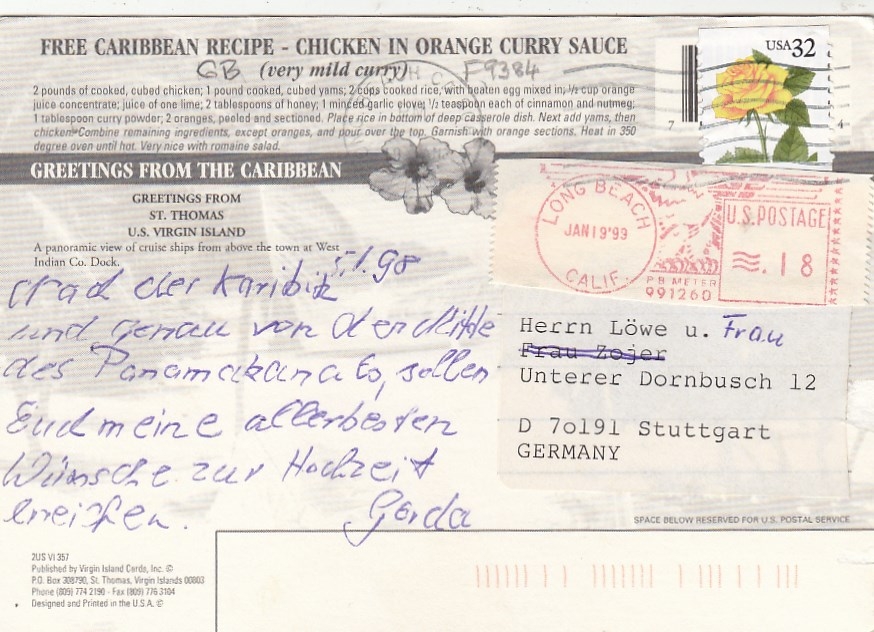 FREE CARIBBEAN RECIPE - CHICKEN IN ORANGE CURRY SAUCE
GB (very mild curry) F9384
2 pounds of cooked, cubed chicken; 1 pound cooked, cubed yams; 2 cups cooked rice, with beaten egg mixed in, ½ cup orange
juice concentrate; juice of one lime; 2 tablespoons of honey; 1 minced garlic clove; ½ teaspoon each of cinnamon and nutmeg;
1 tablespoon curry powder; 2 oranges, peeled and sectioned. Place rice in bottom of deep casserole dish. Next add yams, then
chicken. Combine remaining ingredients, except oranges, and pour over the top. Garnish with orange sections. Heat in 350
degree oven until hot. Very nice with romaine salad.
USA 32
7 4
GREETINGS FROM THE CARIBBEAN
GREETINGS FROM
ST. THOMAS
U.S. VIRGIN ISLAND
A panoramic view of cruise ships from above the town at West
Indian Co. Dock.
LONG BEACH
JAN 19'99
CALIF.
P B METER
991260
U.S. POSTAGE
.18
5.1.98
der Karibik
und genau von der Mitte
des Panamakanales, sollen
Euch meine allerbesten
Wünsche zur Hochzeit
erreichen.
Gerda
Herrn Löwe u. Frau
Frau Zojer
Unterer Dornbusch 12
D 70191 Stuttgart
GERMANY
SPACE BELOW RESERVED FOR U.S. POSTAL SERVICE
2US VI 357
Published by Virgin Island Cards, Inc. ©
P.O. Box 308790, St. Thomas, Virgin Islands 00803
Phone (809) 774 2190 - Fax (809) 776 3104
Designed and Printed in the U.S.A. ©